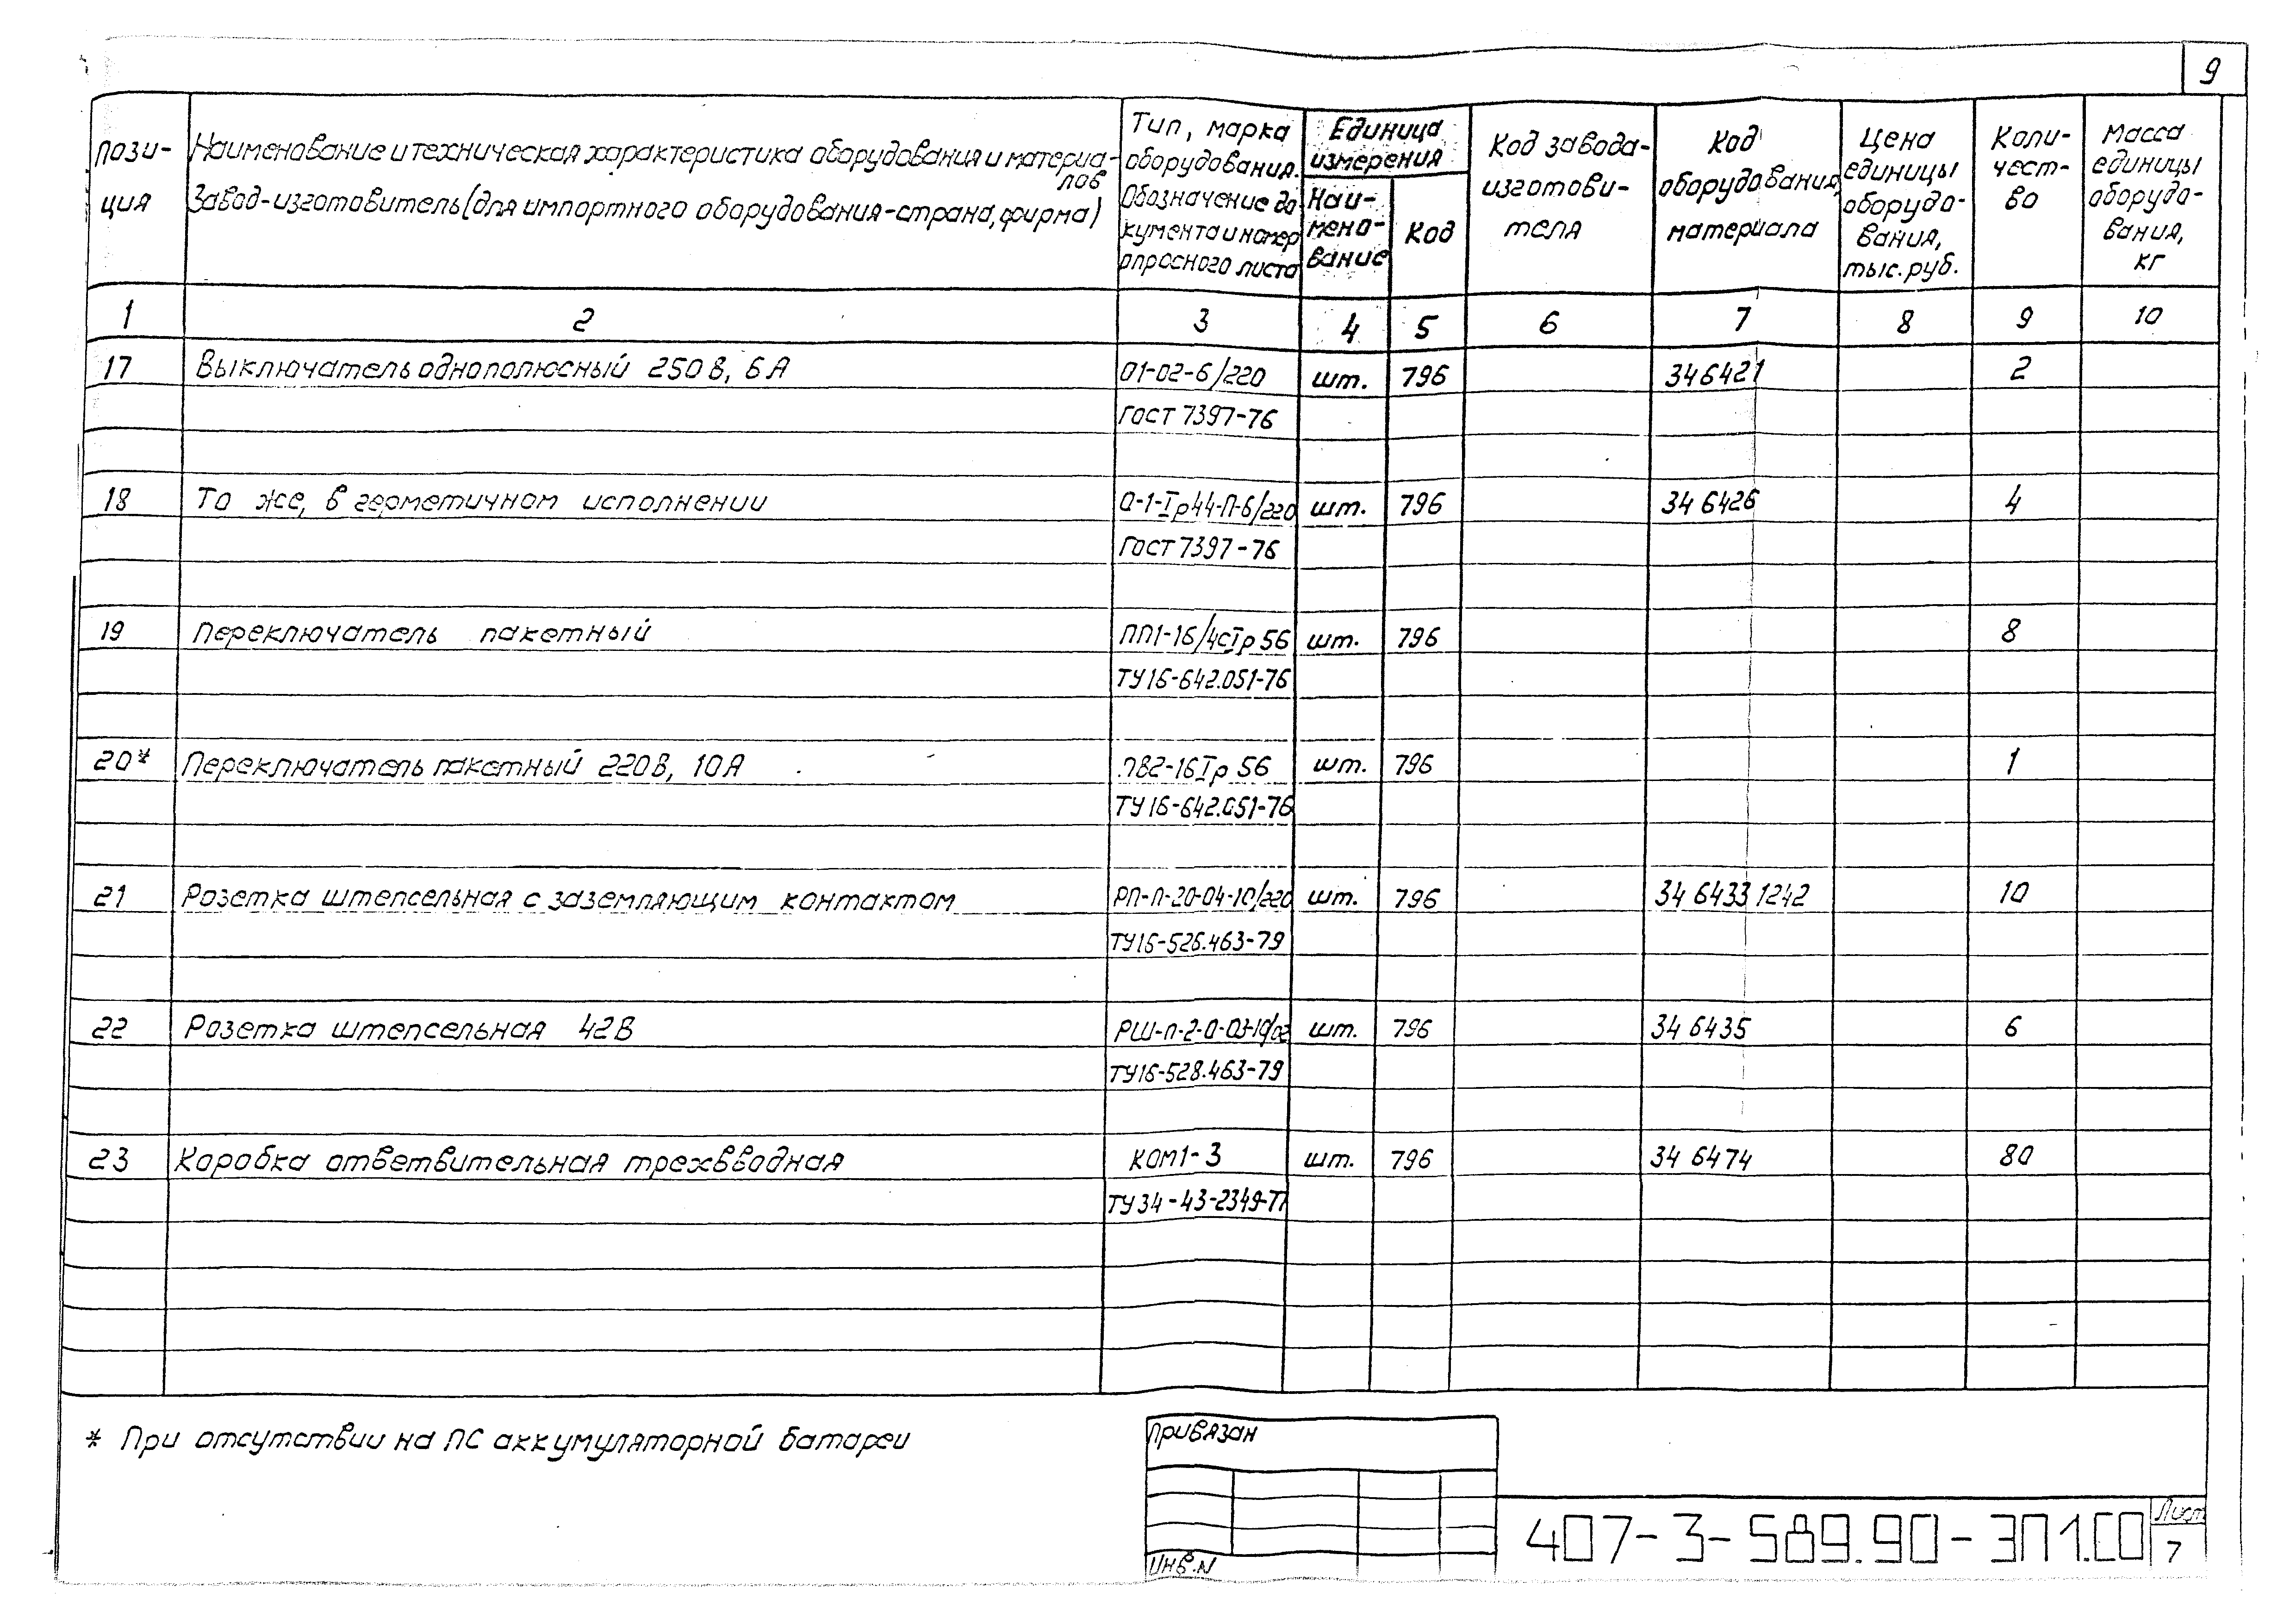 9
Пози-
ция
Наименование и техническая характеристика оборудования и материа-
лов
Завод-изготовитель (для импортного оборудования-страна, фирма)
Тип, марка
оборудования.
Обозначение до
кумента и номер
опросного листа
Единица
измерения
Наи-
мено-
вание
Код
Код завода-
изготови-
теля
Код
оборудования,
материала
Цена
единицы
оборудо-
вания,
тыс. руб.
Коли-
чест-
во
Масса
единицы
оборудо-
вания,
кг
1 2 3 4 5 6 7 8 9 10
17 Выключатель однополюсный 250 В, 6 А 01-02-6/220 шт. 796 34 6421 2
ГОСТ 7397-76
18 То же, в герметичном исполнении 0-1-Iр44-П-6/220 шт. 796 34 6426 4
ГОСТ 7397-76
19 Переключатель пакетный ПП1-16/4сIр 56 шт. 796 8
ТУ16-642.051-76
20* Переключатель пакетный 220В, 10А ПВ2-16Iр 56 шт. 796 1
ТУ16-642.051-76
21 Розетка штепсельная с заземляющим контактом РП-П-20-04-10/220 шт. 796 34 6433 1242 10
ТУ16-526.463-79
22 Розетка штепсельная 42В РШ-П-2-0-03-10/ шт. 796 34 6435 6
ТУ16-528.463-79
23 Коробка ответвительная трехвводная КОМ1-3 шт. 796 34 6474 80
ТУ34-43-2349-77
* При отсутствии на ПС аккумуляторной батареи
Привязан
Инв.N
407-3-589.90-ЭП1.СО
Лист
7